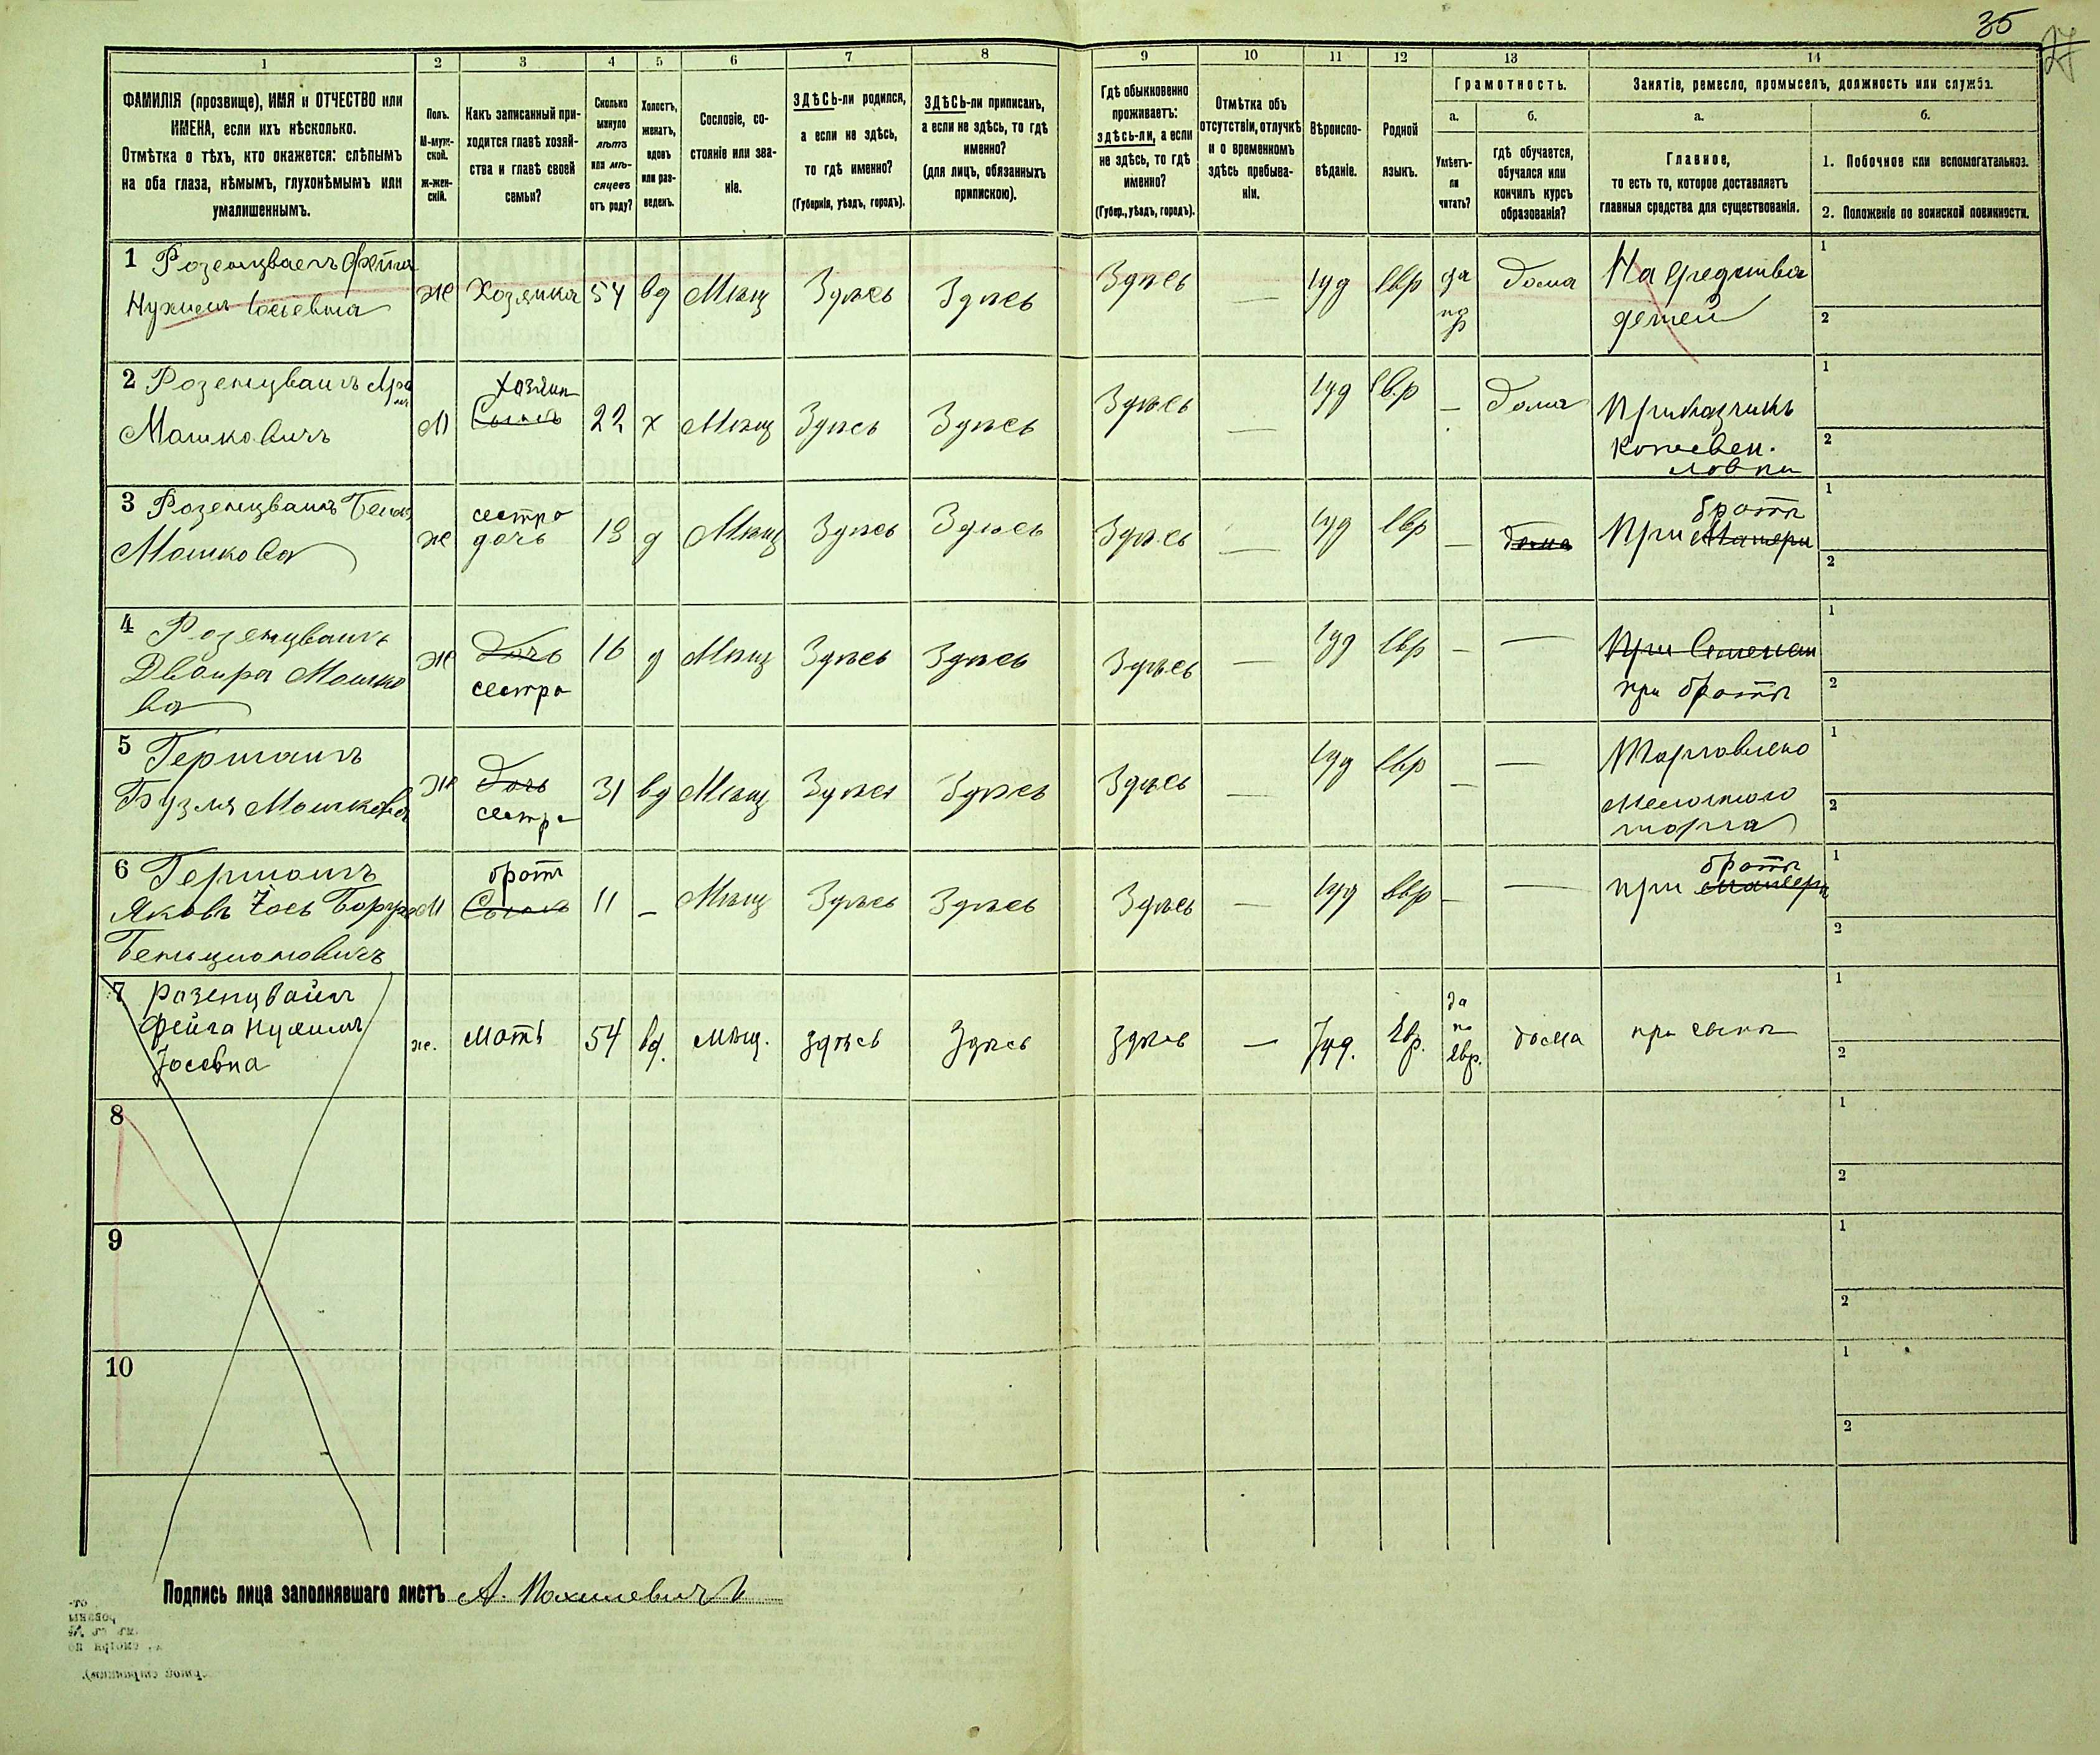 35
27
1 2 3 4 5 6 7 8 9 10 11 12 13 14
ФАМИЛІЯ (прозвище), ИМЯ и ОТЧЕСТВО или
ИМЕНА, если ихъ нѣсколько.
Отмѣтка о тѣхъ, кто окажется: слѣпымъ
на оба глаза, нѣмымъ, глухонѣмымъ или
умалишеннымъ.
Полъ.
М-муж-
ской.
Ж-жен-
скій.
Какъ записанный при-
ходится главѣ хозяй-
ства и главѣ своей
семьи?
Сколько
минуло
лѣтъ
или мѣ-
сяцевъ
отъ роду?
Холостъ,
женатъ,
вдовъ
или раз-
веденъ.
Сословіе, со-
стояніе или зва-
ніе.
ЗДѢСЬ-ли родился,
а если не здѣсь,
то гдѣ именно?
(Губернія, уѣздъ, городъ).
ЗДѢСЬ-ли приписанъ,
а если не здѣсь, то гдѣ
именно?
(для лицъ, обязанныхъ
припискою).
Гдѣ обыкновенно
проживаетъ:
здѣсь-ли, а если
не здѣсь, то гдѣ
именно?
(Губер., уѣздъ, городъ).
Отмѣтка объ
отсутствіи, отлучкѣ
и о временномъ
здѣсь пребыва-
ніи.
Вѣроиспо-
вѣданіе.
Родной
языкъ.
Грамотность.
а.
Умѣетъ-
ли
читать?
б.
гдѣ обучается,
обучался или
кончилъ курсъ
образованія?
Занятіе, ремесло, промыселъ, должность или служба.
а.
Главное,
то есть то, которое доставляетъ
главныя средства для существованія.
б.
1. Побочное или вспомогательное.
2. Положеніе по воинской повинности.
1 Розенцваегъ Фейга
Нухимъ Іосіевна
Ж Хозяйка 54 вд Мѣщ Здѣсь Здѣсь Здѣсь — Іуд Евр да Дома На средства
детей
1
2
2 Розенцваигъ
Мошковичъ
М Хозяин Сынъ 22 х Мѣщ Здѣсь Здѣсь Здѣсь — Іуд Евр — Дома Приказчикъ
1
2
3 Розенцваигъ
Мошкова
Ж сестра дочь 18 д Мѣщ Здѣсь Здѣсь Здѣсь — Іуд Евр — Дома При матери братѣ
1
2
4 Розенцваигъ
Двойра Мошко
ва
Ж Дочь сестра 16 д Мѣщ Здѣсь Здѣсь Здѣсь — Іуд Евр — —
при братѣ
1
2
5 Германъ
Бузля Мошкова
Ж Дочь сестра 31 вд Мѣщ Здѣсь Здѣсь Здѣсь — Іуд Евр — — Торговлею
мелочного
торга
1
2
6 Германъ
Яковъ Іось Борух
Бенционовичъ
М братъ Сынъ 11 — Мѣщ Здѣсь Здѣсь Здѣсь — Іуд Евр — — при матери братѣ
1
2
7 Розенцвайг
Фейга Нухимъ
Іосевна
ж. мать 54 вд. мѣщ. здѣсь Здѣсь здѣсь — Іуд. Евр. да по евр. дома при сынѣ
1
2
8
1
2
9
1
2
10
1
2
Подпись лица заполнявшаго листъ